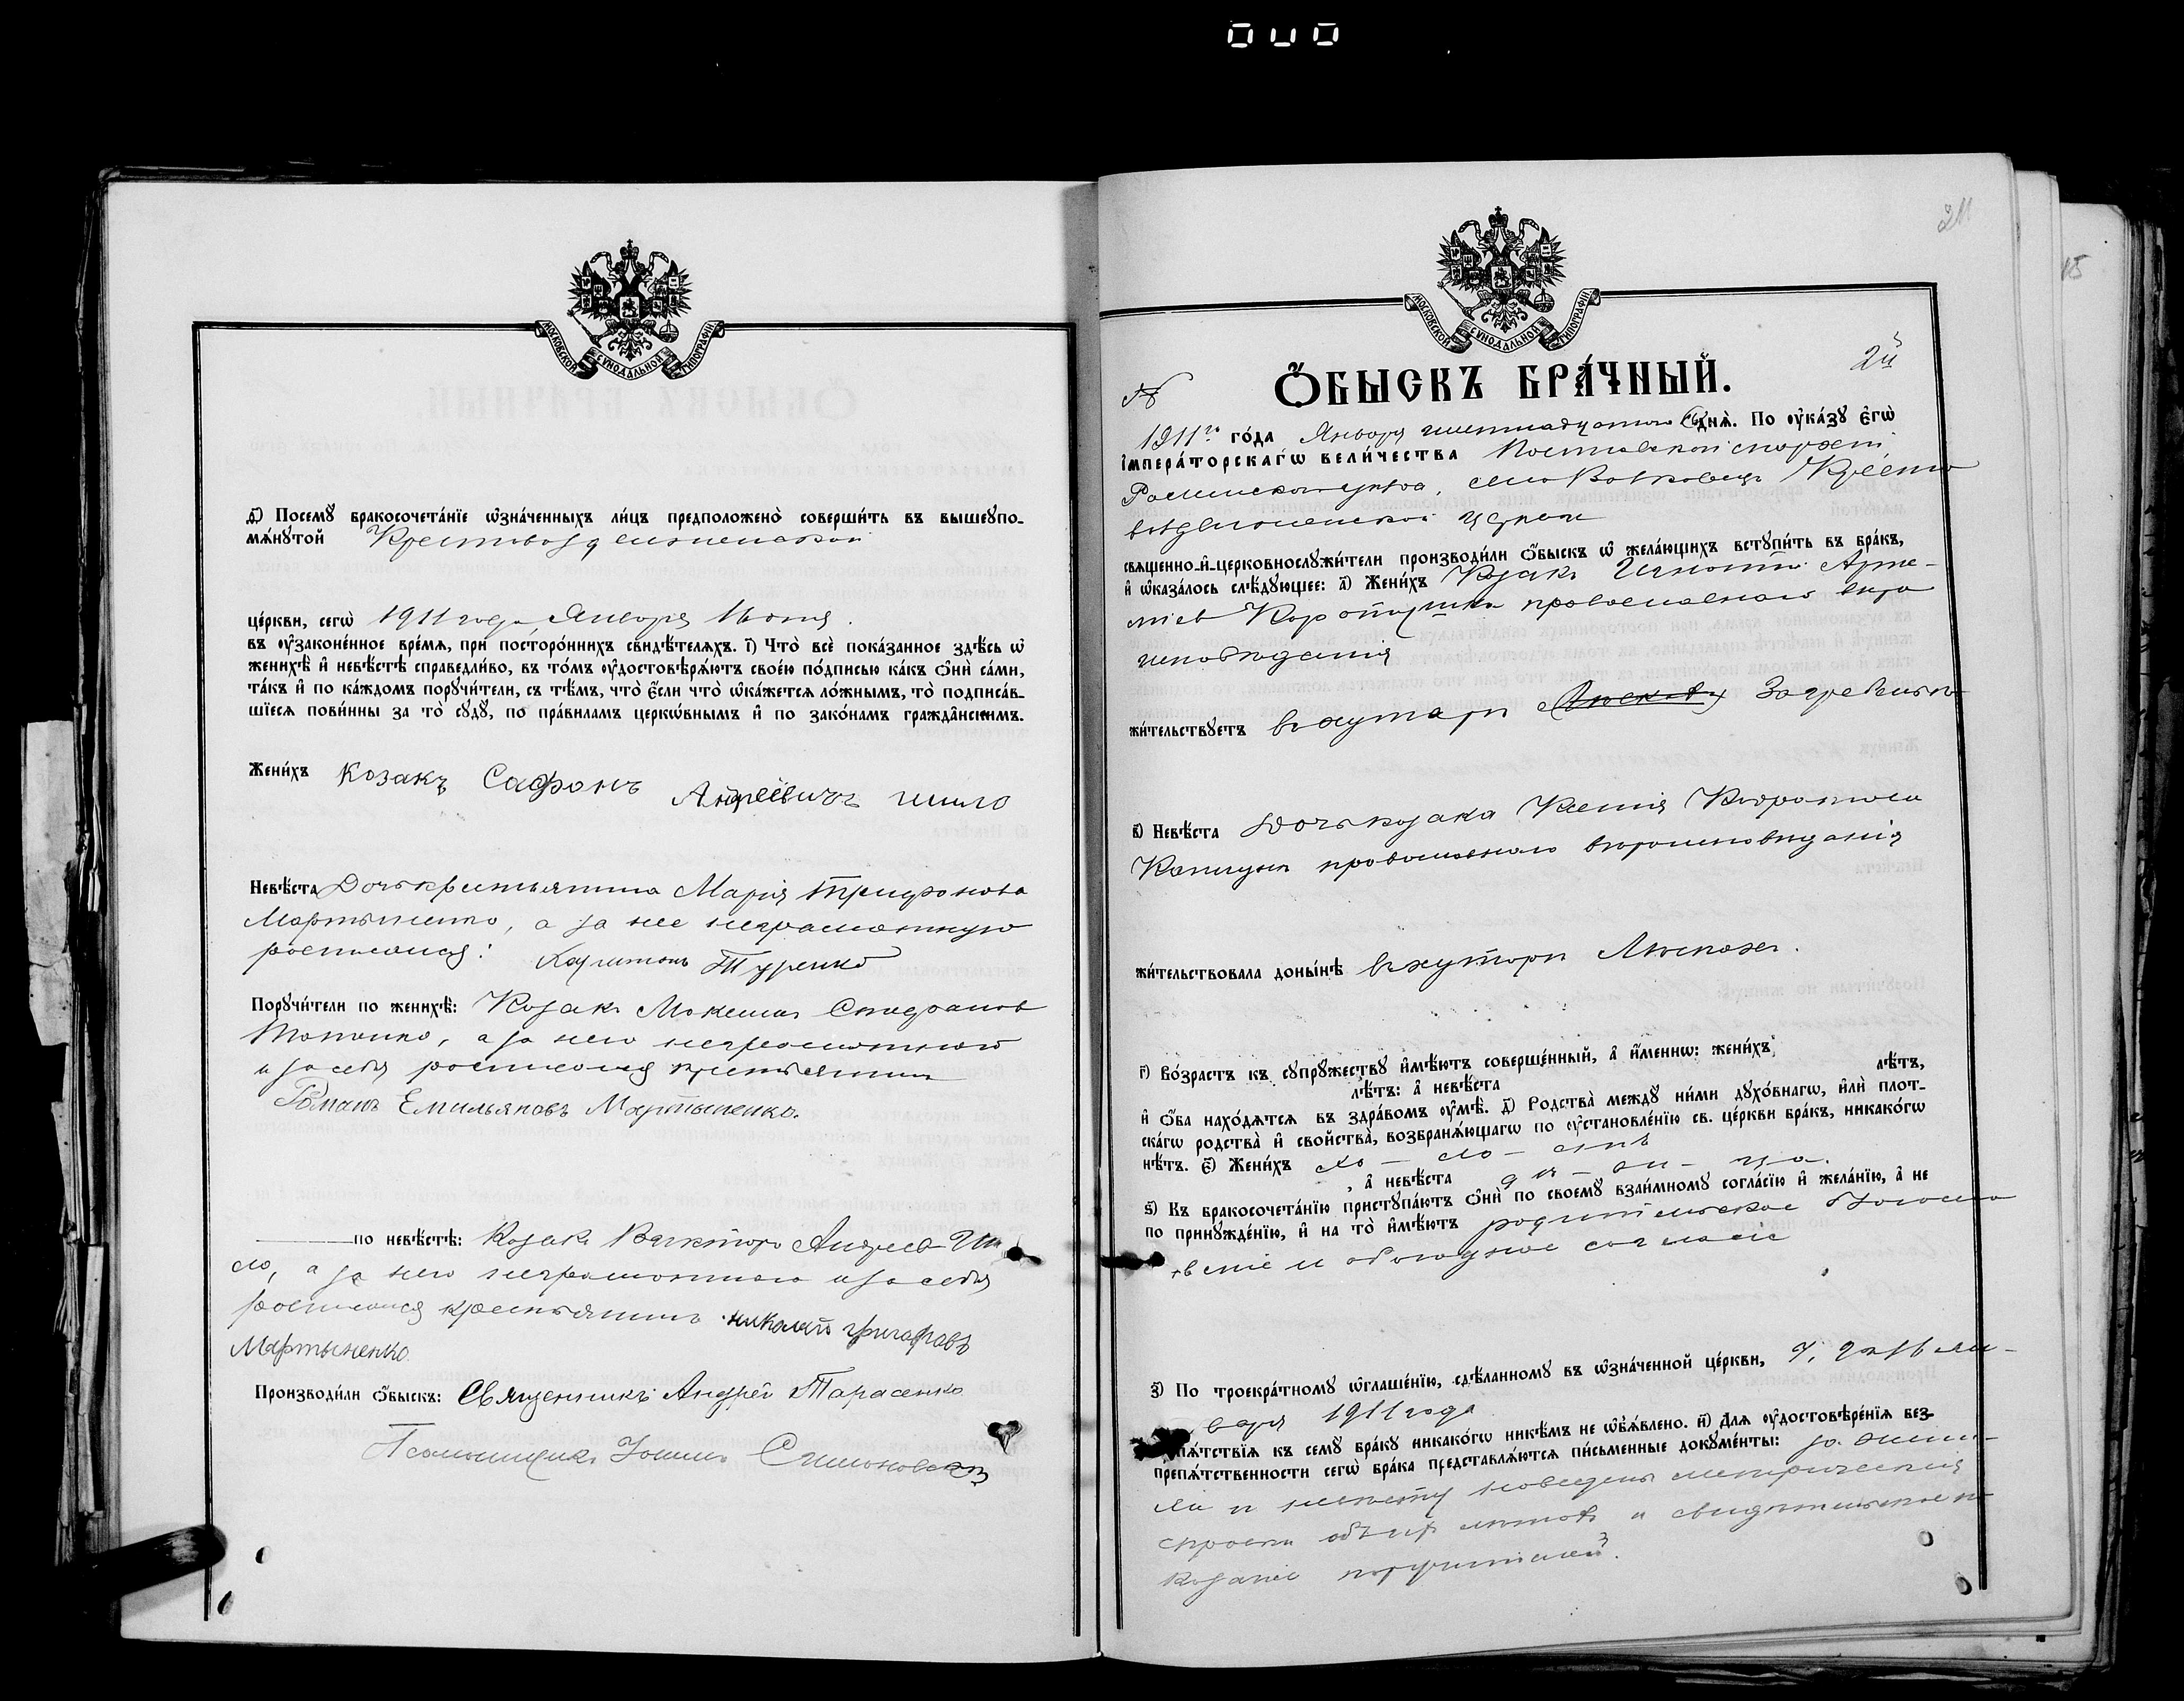 МОСКОВСКОЙ СѴНОДАЛЬНОЙ ТИПОГРАФІИ
Ѳ҃) Посемꙋ̀ бракосочета́нїе ѡ҆зна́ченныхъ ли́цъ предположено̀ соверши́ть въ вышеꙋпо-
мѧ́нꙋтой Крестовоздвиженской
це́ркви, сегѡ̀ 1911 года, Января 16 дня.
въ ᲂу҆зако́не́нное вре́мѧ, при посторо́ннихъ свидѣ́телѧхъ. і҃) Что̀ всѐ пока́занное здѣ́сь ѡ҆
женихѣ̀ и҆ невѣ́стѣ справедли́во, въ то́мъ ᲂу҆достовѣрѧ́ютъ свое́ю по́дписью ка́къ ѻ҆нѝ са́ми,
та́къ и҆ по ка́ждомъ порꙋчи́тели, съ тѣ́мъ, что̀ є҆́сли что̀ ѡ҆ка́жетсѧ ло́жнымъ, то̀ подписа́в-
шїесѧ пови́нны за то̀ сꙋдꙋ̀, по пра́виламъ церкѡ́внымъ и҆ по зако́намъ гражда̂нскимъ.
Жени́хъ Козакъ Сафонъ Андреевичъ шило
Невѣ́ста Дочь крестьянина Марія Трифонова
Мартыненко, а за нее неграмотную
росписался: Харитонъ Туренко
Порꙋчи́тели по женихѣ̀: Козакъ Максимъ Стефановъ
а за него неграмотнаго
и за себя росписался крестьянинъ
Романъ Емильяновъ Мартыненко.
по невѣ́стѣ: Козакъ Викторъ Андреевъ Ши
ло, а за него неграмотнаго и за себя
росписался крестьянинъ николай григоровъ
Мартыненко
Производи́ли ѻ҆́быскъ: Священникъ Андрей Тарасенко
Псаломщикъ Симоновскій
21
15
МОСКОВСКОЙ СѴНОДАЛЬНОЙ ТИПОГРАФІИ
2й
№ Ѻ҆́БЫСКЪ БРА́ЧНЫЙ.
1911го го́да Января шестнадцатого дня̀. По ᲂу҆ка́зꙋ є҆гѡ̀
і҆мпера́торскагѡ вели́чества Полтавской епархіи,
Роменского уѣзда, села Волковецъ Кресто
воздвиженской церкви
свѧще́нно-и҆-церковнослꙋжи́тели производи́ли ѻ҆́быскъ ѡ҆ жела́ющихъ встꙋпи́ть въ бра́къ,
и҆ ѡ҆каза́лось слѣ́дꙋющее: а҃) Жени́хъ Козакъ Игнатій Арте-
міевъ православнаго вѣро
исповѣданія
жи́тельствꙋетъ въ хуторѣ
в҃) Невѣ́ста Дочь козака Ксенія
православнаго вѣроисповѣданія
жи́тельствовала доны́нѣ въ хуторѣ
г҃) Во́зрастъ къ сꙋпрꙋ́жествꙋ и҆мѣ́ютъ соверше́нный, а҆ и҆́меннѡ: жени́хъ лѣ́тъ,
лѣ́тъ: а҆ невѣ́ста
и҆ ѻ҆́ба нахо́дѧтсѧ въ здра́вомъ ᲂу҆мѣ̀. д҃) Родства̀ междꙋ ни́ми дꙋхо́внагѡ, и҆лѝ плот-
ска́гѡ родства̀ и҆ сво́йства, возбранѧ́ющагѡ по ᲂу҆становле́нїю св. це́ркви бра́къ, никако́гѡ
нѣ́тъ. є҃) Жени́хъ хо - ло - стъ
, а҆ невѣ́ста дѣ - ви - ца.
ѕ҃) Къ бракосочета́нїю пристꙋпа́ютъ ѻ҆нѝ по своемꙋ̀ взаи́мномꙋ согла́сїю и҆ жела́нїю, а҆ не
по принꙋжде́нїю, и҆ на то̀ и҆мѣ́ютъ родительское благосло
веніе и обоюдное согласіе
з҃) По троекра́тномꙋ ѡ҆глаше́нїю, сдѣ́ланномꙋ въ ѡ҆зна́ченной це́ркви,
варя 1911 года
препѧ́тствїѧ къ семꙋ̀ бра́кꙋ никако́гѡ никѣ́мъ не ѡ҆б̾ѧ́влено. и҃) Длѧ ᲂу҆достовѣре́нїѧ без-
препѧ́тственности сегѡ̀ бра́ка представлѧ́ютсѧ пи́сьменные докꙋме́нты:
наведены метрическія
справки объ ихъ лѣтахъ и свидѣтельское по
казаніе поручителей.